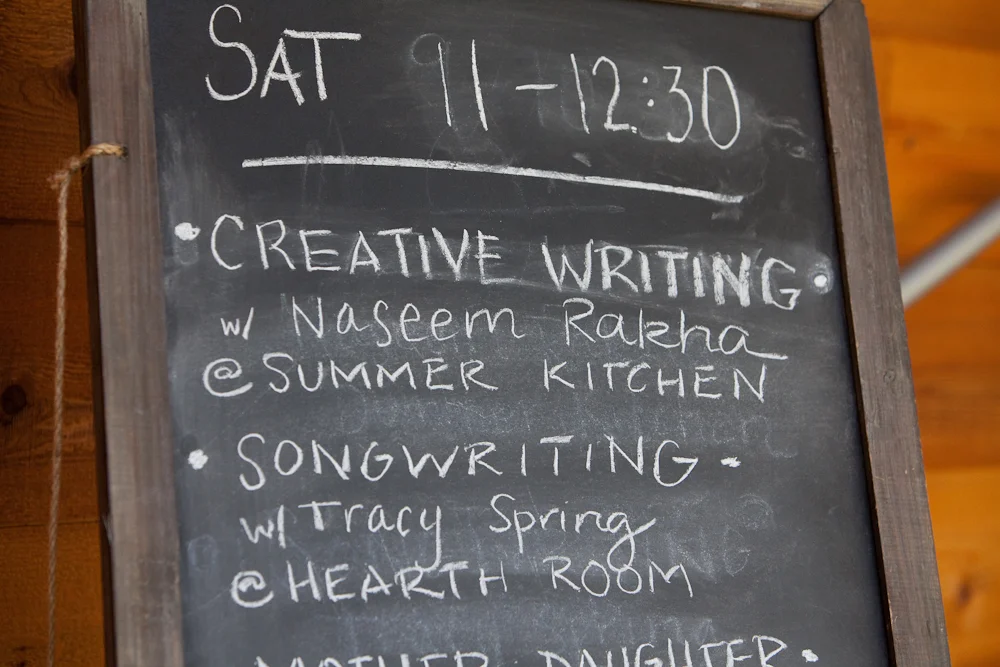 SAT 11-12:30
• CREATIVE WRITING •
w/ Naseem Rakha
@ SUMMER KITCHEN
• SONGWRITING •
w/ Tracy Spring
@ HEARTH ROOM
MOTHER DAUGHTER •